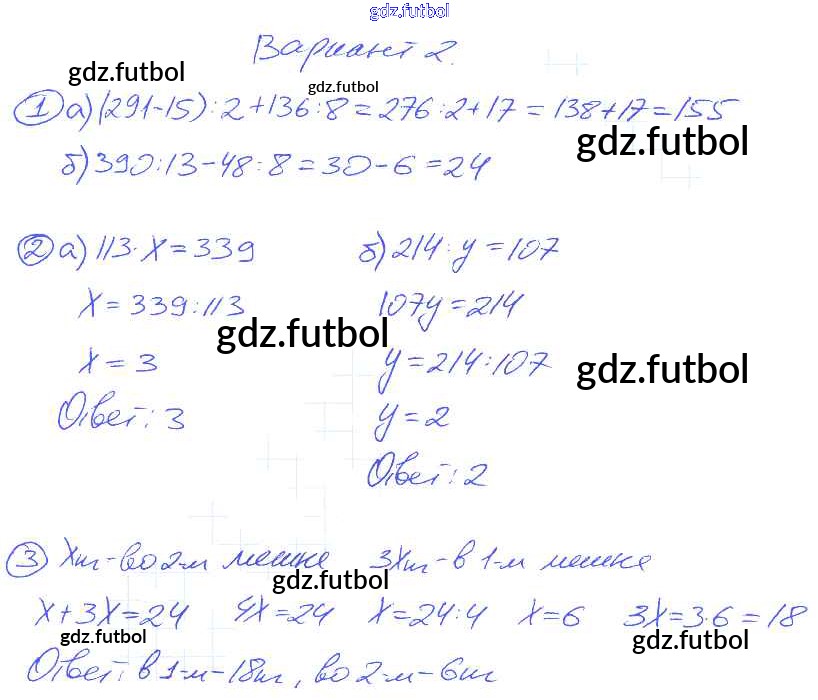 gdz.futbol
Вариант 2.
gdz.futbol
gdz.futbol
① а) (291-15):2+136:8=276:2+17=138+17=155
gdz.futbol
б) 390:13-48:8=30-6=24
② а) 113·x=339 б) 214:y=107
x=339:113 107y=214
gdz.futbol
x=3 y=214:107
gdz.futbol
Ответ: 3 y=2
Ответ: 2
③ xш-во 2-м мешке 3xш-в 1-м мешке
gdz.futbol
x+3x=24 4x=24 x=24:4 x=6 3x=3·6=18
gdz.futbol gdz.futbol
Ответ: в 1-м-18ш, во 2-м-6ш